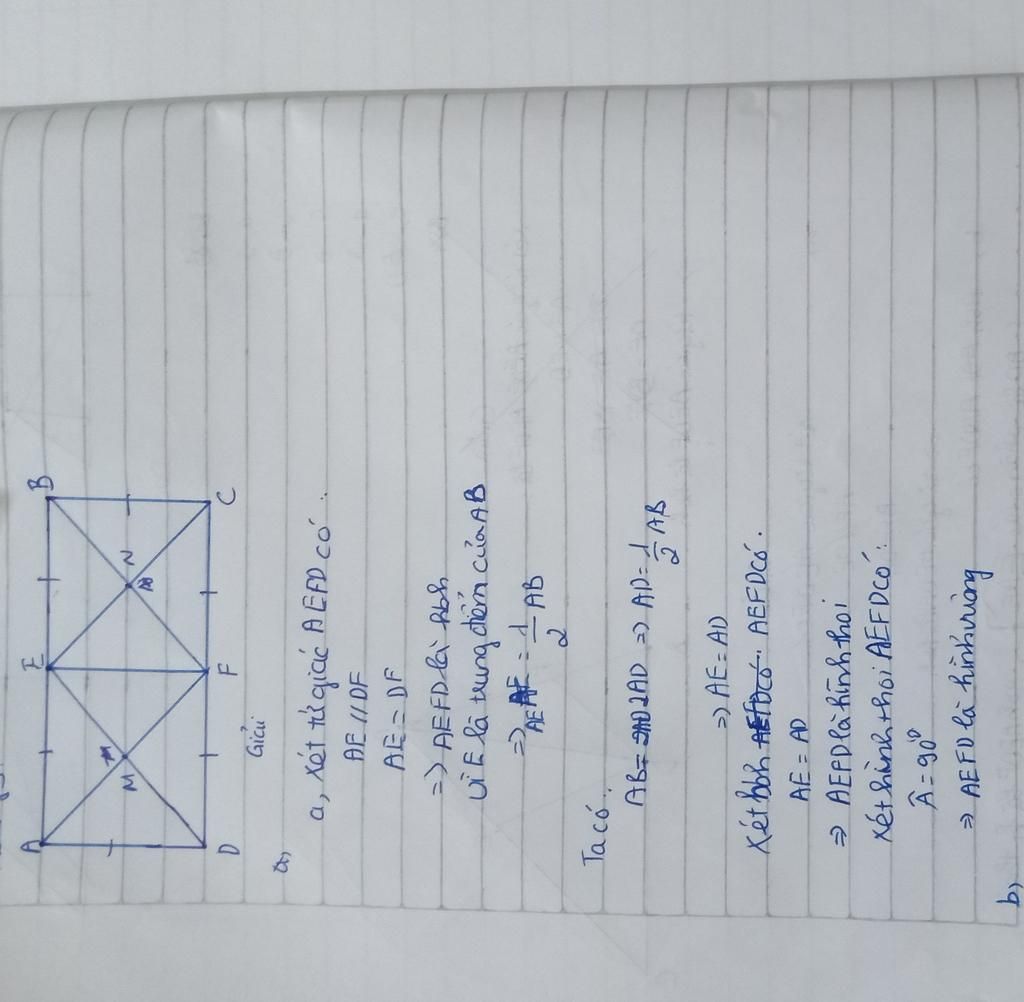 A E B
M N
D F C
Giải
a, xét tứ giác AEFD có:
AE // DF
AE = DF
=> AEFD là hbh
Vì E là trung điểm của AB
=> AE = 1/2 AB
Ta có:
AB = 2AD => AD = 1/2 AB
=> AE = AD
Xét hbh AEFD có.
AE = AD
=> AEFD là hình thoi
Xét hình thoi AEFD có:
Â = 90°
=> AEFD là hình vuông
b,